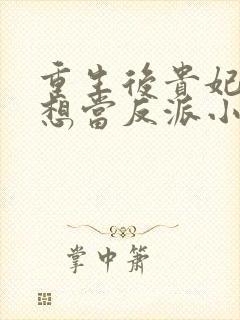 重生後貴妃
想當反派小
掌中簫